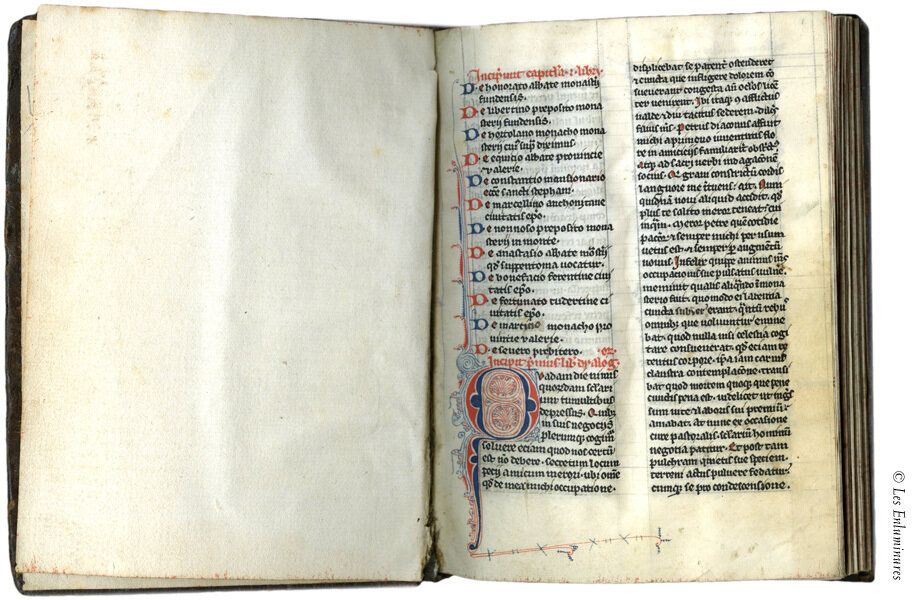 Incipiunt capitula · libri
De honorato abbate monasterij
fundensis.
De libertino preposito mona
sterij fundensis.
De hortolano monacho mona
sterij cui sup̄ diximus
De equicio abbate prouincie
valerie.
De constantio mansionario
eccē sancti stephani.
De marcellino anchonitane
ciuitatis ep̄o.
De nonnoso preposito mona
sterij in monte.
De anastasio abbate
suppentoma uocatur.
De bonefacio ferentine ciui
tatis ep̄o.
De fortunato tudertine ci
uitatis ep̄o.
De martino monacho pro
uintie valerie.
De seuero prebitero.
Incipit p̄mus lib dyalog
Quadam die nimiis
quorumdam seculari
um tumultibus
depressus. Quibȝ
in suis negociis
plerumqȝ cogimur
soluere eciam quod nos certū
est nō debere. secretum locum
petij amicum merori. ubi om̄e
qđ de mea michi occupatione.
displicebat se patent ostenderet
et cuncta que infligere dolorem cō
sueuerant congesta añ oculos lice
ret uenirent. Ibi itaqȝ afflictus
ualde et diu tacitus sederem.
filius m̄s. Petrus diaconus affuit
michi a primeuo iuuentutis flo
re in amicicijs familiariter
atqȝ ad sacri uerbi indagacōnē
socius. Qui graui constrictum cordis
languore me intuens. ait. Num
quidnam noui aliquid accidit. qđ
plus te solito meror teneat. cui
inquam. Meror petre quem cotidie
pacior. et semper michi per usum
uetus est. et semper per augmentū
nouus. Infelix quippe animus m̄s
occupacionis sue pulsatus uulnere
meminit qualis aliqñdo in mona
sterio fuit. quomodo ei labentia
cuncta subter erant. qñtum rebȝ
omnibȝ que uoluuntur emine
bat. quod nulla nisi celestia cogi
tare consueuerat. qđ eciam re
tentus corpore. ip̄a iam carnis
claustra contemplacōne transi
bat. quod mortem quoqȝ que pene
cunctis pena est. uidelicet ut ingr̄s
sum uite et laboris sui premiū
amabat. At nunc ex occasione
cure pastoralis. seculariū hominū
negotia patitur. Et post tam
pulchram quietis sue speciem.
terreni actus puluere fedatur.
cumque se pro condescensione.
© Les Enluminures